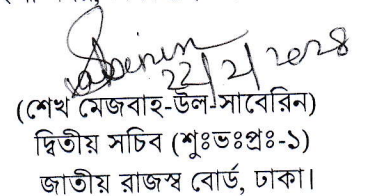 22/2/2028
(শেখ মেজবাহ-উল-সাবেরিন)
দ্বিতীয় সচিব (শুঃভঃপ্রঃ-১)
জাতীয় রাজস্ব বোর্ড, ঢাকা।